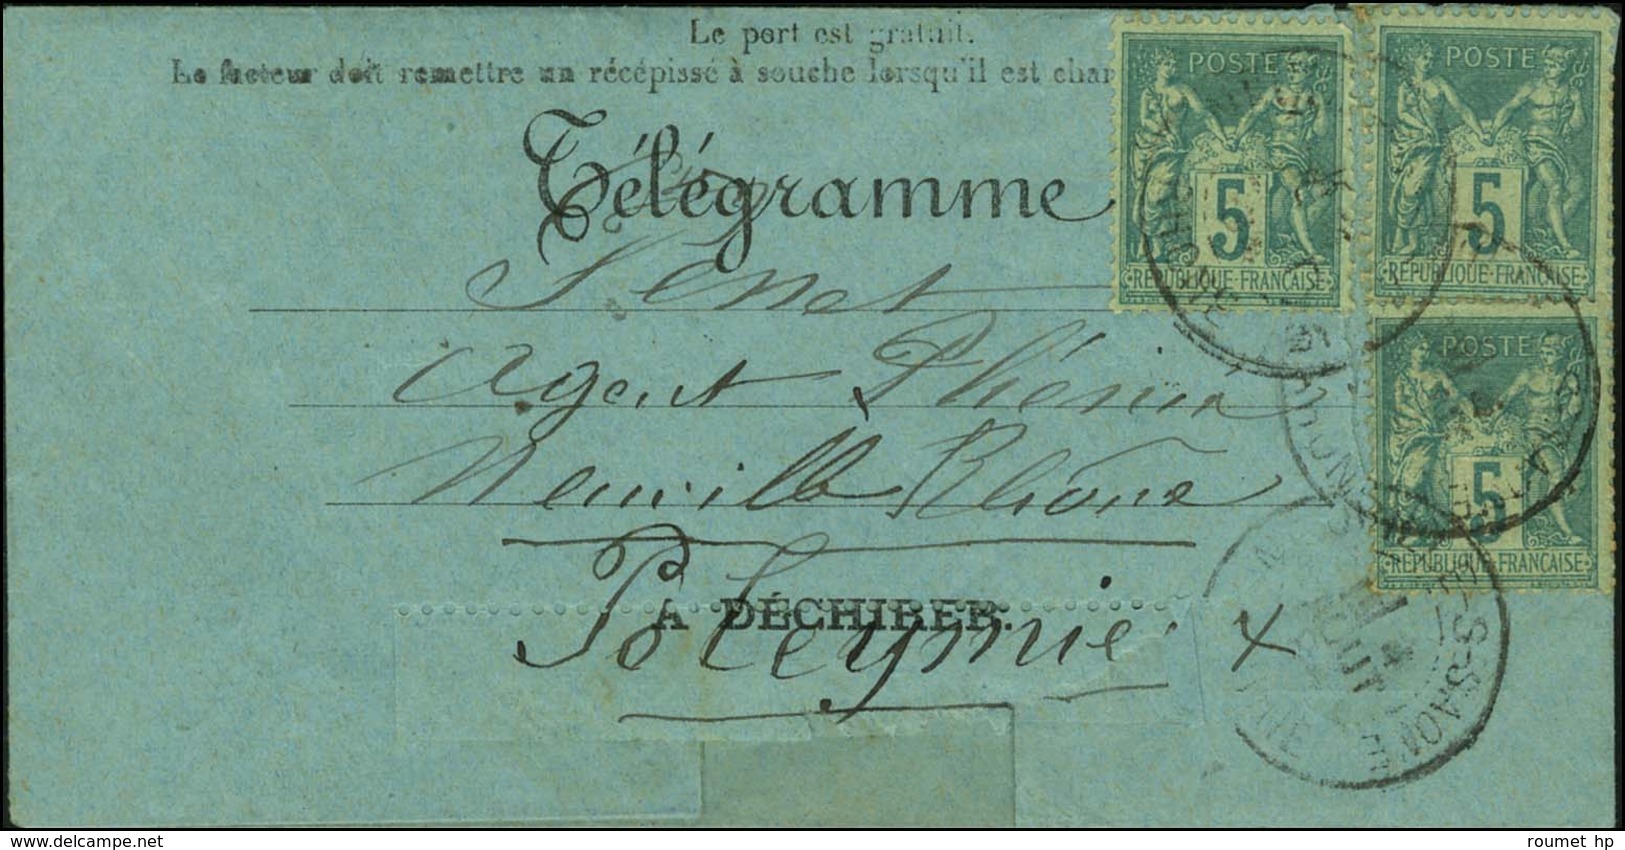 Le port est gratuit.
Le facteur doit remettre un récépissé à souche lorsqu'il est char
Télégramme
Sénet
Agent Phénix
Neuville Rhône
A DÉCHIRER.
Poleymie
POSTE
5
RÉPUBLIQUE FRANÇAISE
POSTE
5
RÉPUBLIQUE FRANÇAISE
POSTE
5
RÉPUBLIQUE FRANÇAISE
S-SAONE
roumet hp